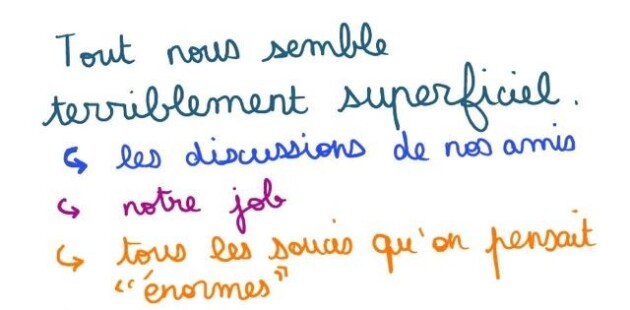 Tout nous semble
terriblement superficiel.
↳ les discussions de nos amis
↳ notre job
↳ tous les soucis qu'on pensait
"énormes"